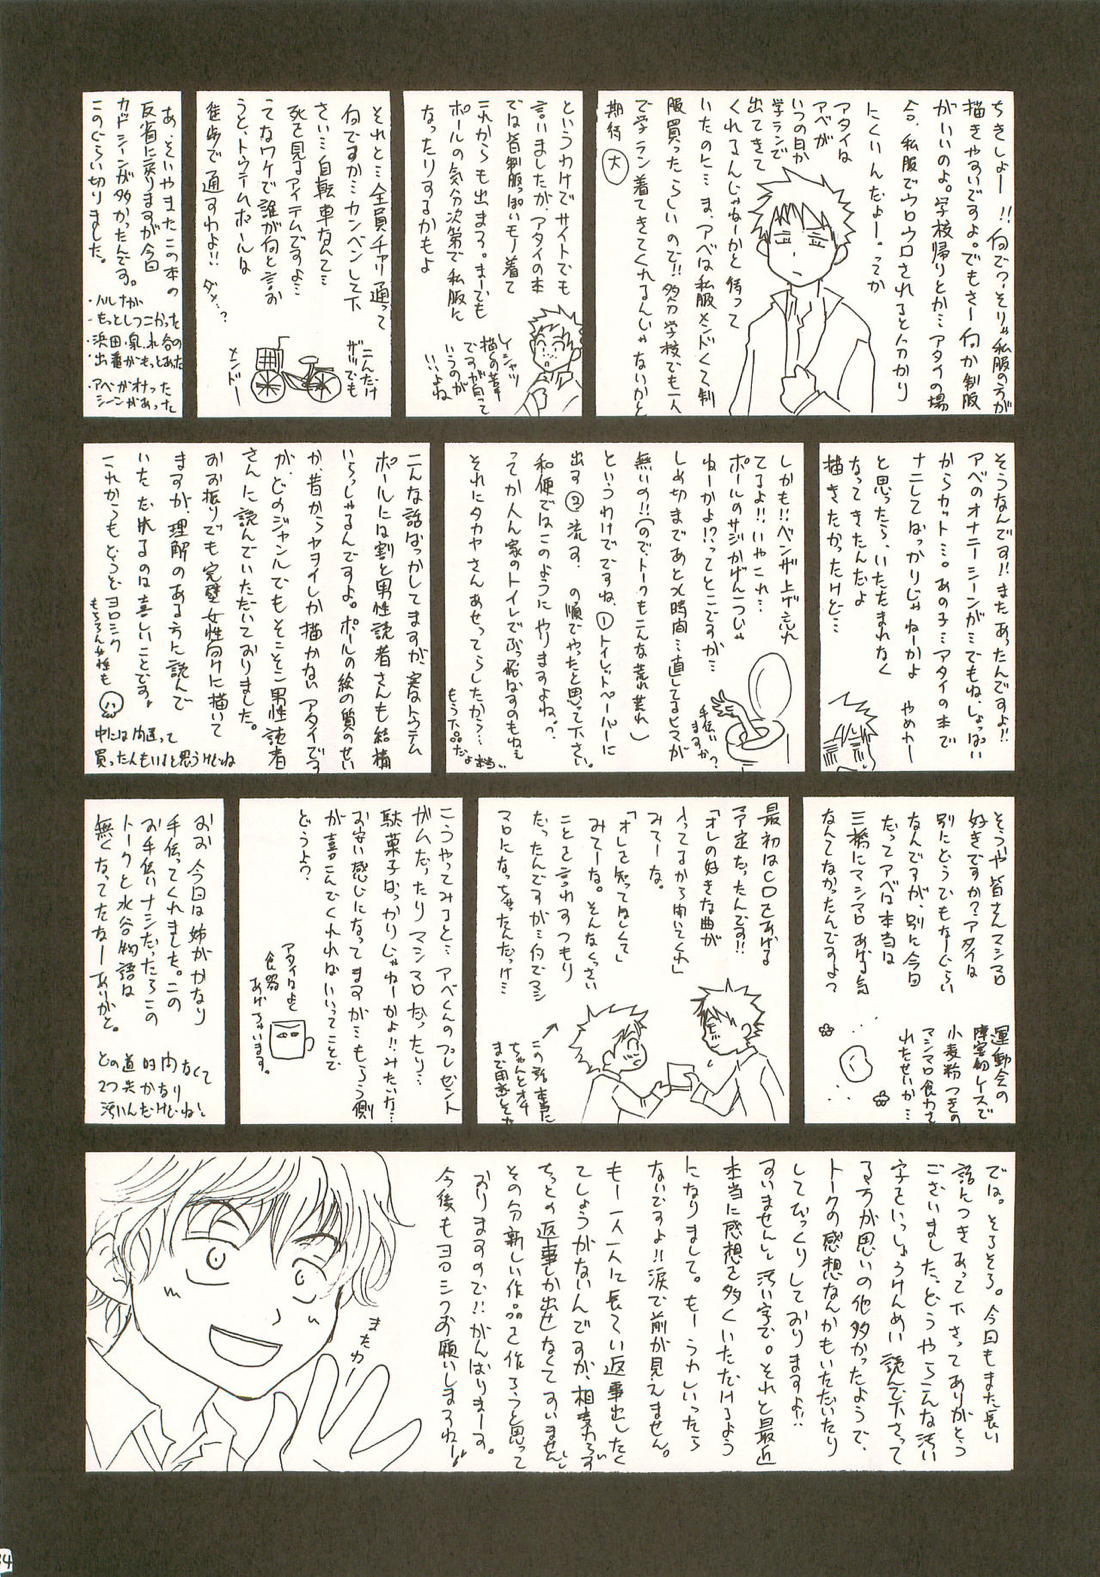 ちきしょー!!何で?そりゃ私服の方が
描きやすいですよ。でもさー何か制服
がいいのよ。学校帰りとか…アタイの場
合、私服でウロウロされると分かり
にくいんだよー。ってか
アタイは
アベが
いつの日か
学ランで
出てきて
くれるんじゃねーかと待って
いたのに…ま、アベは私服メンドくて制
服買ったらしいので!!多分学校でも一人
で学ラン着てきてくれるんじゃないかと
期待大
というわけでサイトでも
言いましたが、アタイの本
では皆制服っぽいモノ着て
これからも出まスる。までも
ポールの気分次第で私服に
なったりするかもよ
Yシャツ
描くの苦手
ですが白って
いうのが
いいよね
それと…全員チャリ通って
何ですか…カンベンして下
さい…自転車なんて…
死を見るアイテムですよ…
てなワケで誰が何と言お
うと、トウテムポールは
徒歩で通すわよ!!ダメ…?
こんだけ
ザッでも
メンドー
あ、そいやまたこの本の
反省に戻りますが今回
カドシーンが多かったんです。
このぐらい切りました。
・ハルナが
もっとしつこかった
・浜田・泉・水谷の
出番がもっとあった
・アベがオナった
シーンがあった
そうなんです!!またあったんですよ!!
アベのオナニーシーンが…でもね、しょっぱい
からカット…。あの子…アタイの本で
ナニしてばっかりじゃねーかよ やめれー
と思ったら、いたたまれなく
なってきたんだよ
描きたかったけど…
しかも!!ベンザ上げ忘れ
てるよ!!いやこれ…
ポールのサジかげん一つじゃ
ねーかよ!?ってとこですが…
しめ切りまであと×時間…直してるヒマが
無いの!!(ので、トークもこんな荒れ荒れ)
というわけでですね、①トイレットペーパーに
出す ②流す の順でやったと思って下さい。
和便ではこのようにやりますよね?
ってか人ん家のトイレでぶっ飛ばすのもねぇ
それにタカヤさんあせってらしたから?…
もう下品だな
だよ本当…
手伝い
ますか?
こんな話ばっかしてますが、実はトウテム
ポールには割と男性読者さんも結構
いらっしゃるんですよ。ポールの絵の質のせい
か、昔からヤヲイしか描かないアタイです
が、どのジャンルでもそこそこ男性読者
さんに読んでいただいておりました。
おお振りでも完璧女性向けに描いて
ますが、理解のある方に読んで
いただけるのは喜しいことです。
これからもどうぞヨロシク
もちろん女性も
中には間違って
買ったんもいると思うけどね
そういや皆さんマシマロ
好きですか?アタイは
別にどうでもなーぐらい
なんですが、別に今回
だってアベは本当は
三橋にマシマロあげる気
なんてなかったんですよ?
運動会の
障害物レースで
小麦粉つきの
マシマロ食わさ
れたせいか…
最初はCDをあげる
予定だったんです!!
「オレの好きな曲が
入ってるから聞いてくれ」
みてーな。
「オレを知ってほしくて」
みてーな。そんなくっさい
ことを言わすつもり
だったんですが…何でマシ
マロになっちゃったんだっけ…
この話本当に
ちゃんとオチ
まで用意してた
こうやってみると…アベくんのプレゼント
がムだったりマシマロだったり…
駄菓子ばっかりじゃねーかよ!!みたいな…
お安い感じになってますが…もらう側
が喜こんでくれればいいってことで
どうよ?
アタイはよく
食器
あげちゃいます。
おお 今回は姉がかなり
手伝ってくれました。この
お手伝いナシだったらこの
トークと水谷物語は
無くなってたなーありがと。
での。そろそろ。今回もまた長い
話んつきあって下さってありがとう
ございました。どうやらこんな汚い
字をいっしょうけんめい読んで下さって
る方が思いの他多かったようで、
トークの感想なんかもいただいたり
してびっくりしておりますよ!!
すいませんし汚い字で。それと最近
本当に感想を多くいただけるよう
になりまして。もーうれしいったら
ないですよ!!涙で前が見えません。
も一人一人に長ーい返事出したく
てしょうがないんですが、相変わらず
ちょとの返事しか出せなくてすいませんし
その分新しい作品を作ろうと思って
おりますので!!がんばりまーす。
今後もヨロシクお願いしますねー!!
またねー
34